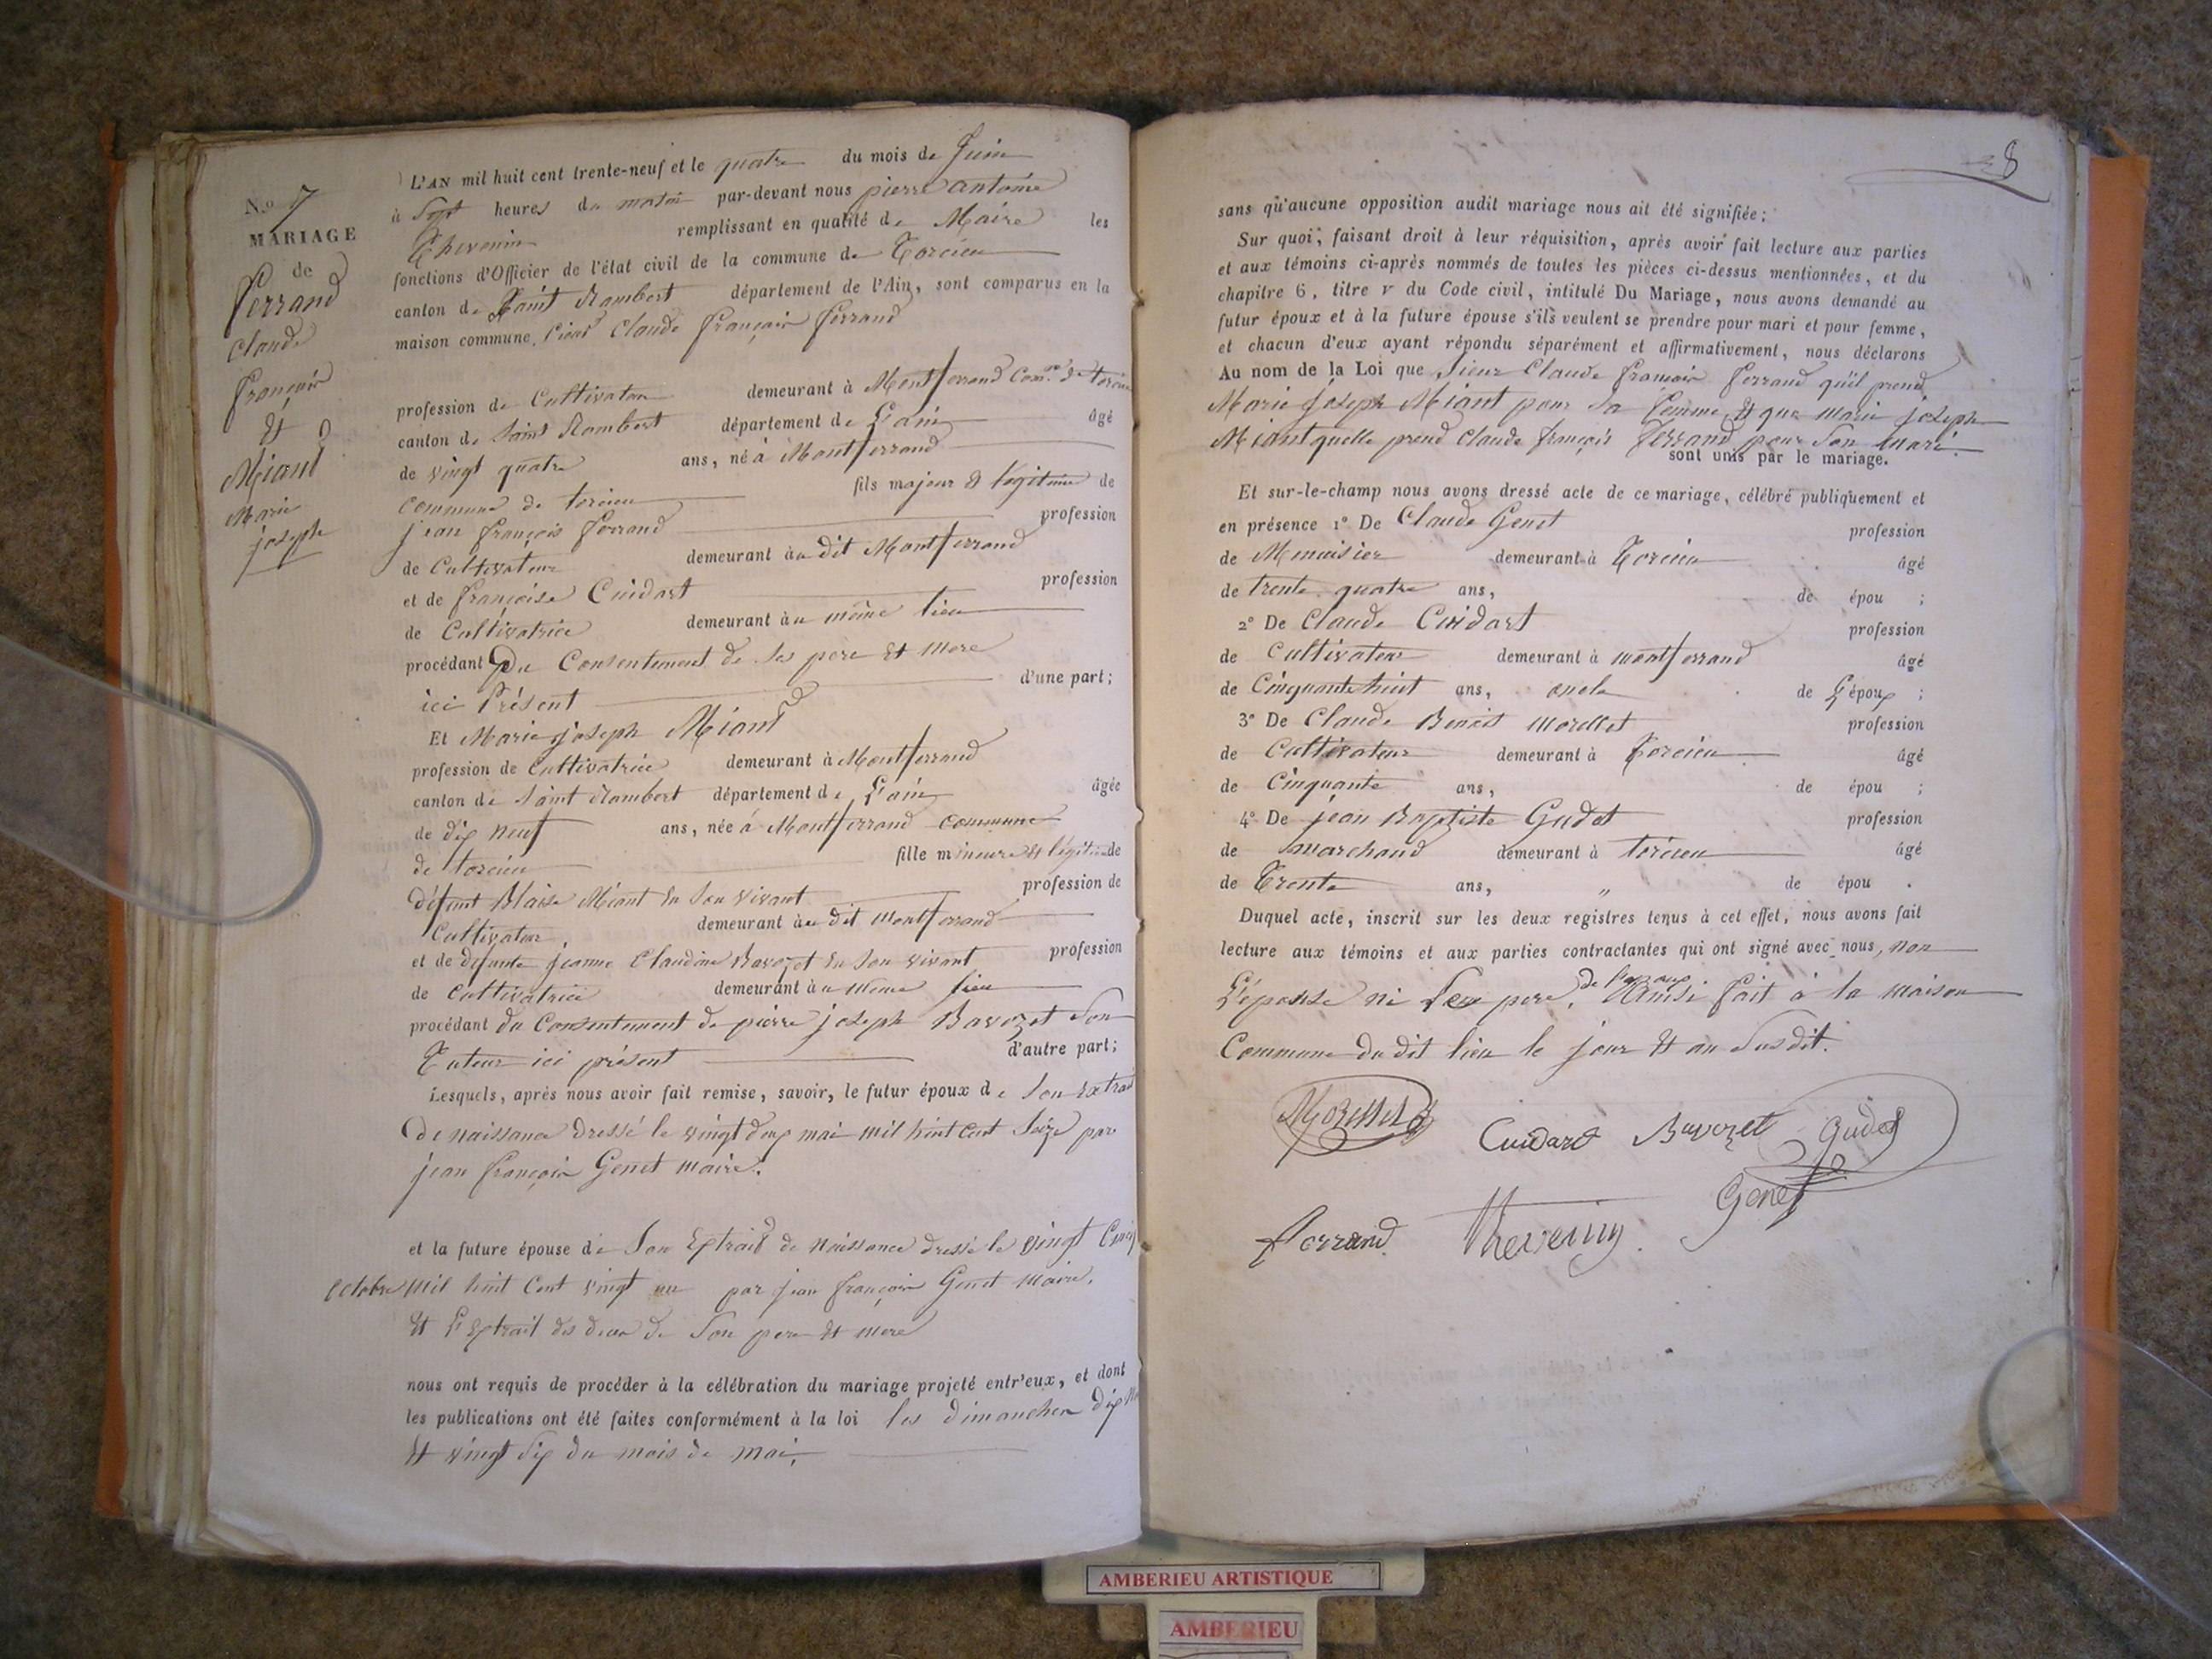 No 7
MARIAGE
de
Ferrand
Claude
françois
Et
Miant
Marie
joseph
L'AN mil huit cent trente-neuf et le quatre du mois de Juin
à Sept heures du matin par-devant nous pierre antoine
Thevenin remplissant en qualité de Maire les
fonctions d'Officier de l'état civil de la commune de Torcieu
canton de Saint Rambert département de l'Ain, sont comparus en la
maison commune, Sieur Claude françois ferrand
profession de Cultivateur demeurant à Montferrand Comne de torcieu
canton de Saint Rambert département de L'ain âgé
de vingt quatre ans, né à Montferrand
Commune de torcieu fils majeur & légitime de
jean françois ferrand profession
de Cultivateur demeurant au dit Montferrand
et de françoise Cuidart profession
de Cultivatrice demeurant au même lieu
procédant Du Consentement de ses pere Et mere
ici Présent d'une part;
Et Marie joseph Miant
profession de Cultivatrice demeurant à Montferrand
canton de Saint Rambert département de L'ain âgée
de dix neuf ans, née à Montferrand commune
de torcieu fille mineure & légitime de
défunt Blaise Miant En Son vivant profession de
Cultivateur, demeurant au dit montferrand
et de defunte jeanne Claudine Bavozet En Son vivant profession
de Cultivatrice demeurant au meme lieu
procédant du Consentement de pierre joseph Bavozet Son
Tuteur ici présent d'autre part;
Lesquels, après nous avoir fait remise, savoir, le futur époux de Son Extrait
De naissance Dressé le vingt deux mai mil huit Cent Seize par
jean françois Genet maire.
et la future épouse de Son Extrait de Naissance dressé le vingt Cinq
octobre mil huit Cent vingt un par jean françois Genet maire.
Et L'Extrait des deces de Son pere Et mere
nous ont requis de procéder à la célébration du mariage projeté entr'eux, et dont
les publications ont été faites conformément à la loi les dimanches Dix
Et vingt Six du mois de mai,
8
sans qu'aucune opposition audit mariage nous ait été signifiée;
Sur quoi, faisant droit à leur réquisition, après avoir fait lecture aux parties
et aux témoins ci-après nommés de toutes les pièces ci-dessus mentionnées, et du
chapitre 6, titre v du Code civil, intitulé Du Mariage, nous avons demandé au
futur époux et à la future épouse s'ils veulent se prendre pour mari et pour femme,
et chacun d'eux ayant répondu séparément et affirmativement, nous déclarons
Au nom de la Loi que Sieur Claude françois ferrand qu'il prend
Marie joseph Miant pour Sa femme, Et que marie joseph
Miant quelle prend Claude françois ferrand pour Son Mari.
sont unis par le mariage.
Et sur-le-champ nous avons dressé acte de ce mariage, célébré publiquement et
en présence 1° De Claude Genet profession
de Menuisier demeurant à Torcieu âgé
de trente quatre ans, de épou ;
2° De Claude Cuidart profession
de Cultivateur demeurant à montferrand âgé
de Cinquante huit ans, oncle de L'époux ;
3° De Claude Benoit morellet profession
de Cultivateur demeurant à Torcieu âgé
de Cinquante ans, de épou ;
4° De jean Baptiste Gudet profession
de marchand demeurant à torcieu âgé
de Trente ans, " de épou .
Duquel acte, inscrit sur les deux registres tenus à cet effet, nous avons fait
lecture aux témoins et aux parties contractantes qui ont signé avec nous, non
L'épouse ni Le pere, de l'époux Ainsi fait à la maison
Commune du dit lieu le jour Et an Susdit.
Morellet
Cuidart Bavozet Gudet
Genet
ferrand Thevenin
AMBERIEU ARTISTIQUE
AMBERIEU